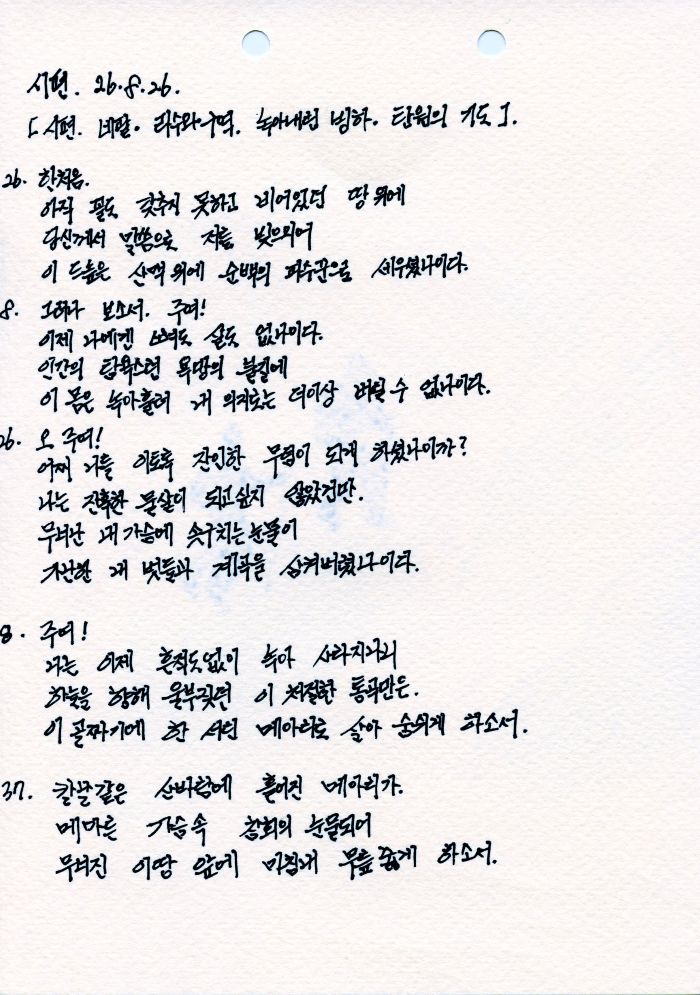 시편. 26.8.26.
[시편. 네팔. 라수와 구역. 녹아내린 빙하. 탄원의 기도].
26. 한처음.
아직 꼴도 갖추지 못하고 비어있던 땅 위에
당신께서 말씀으로 저를 빚으시어
이 드높은 산맥 위에 순백의 파수꾼으로 세우셨나이다.
8. 그러나 보소서. 주여!
이제 나에겐 뼈도 살도 없나이다.
인간의 탐욕스런 욕망의 불길에
이 몸은 녹아흘러 제 의지로는 더이상 버틸 수 없나이다.
26. 오, 주여!
어찌 저를 이토록 잔인한 무덤이 되게 하셨나이까?
나는 잔혹한 물살이 되고싶지 않았건만.
무너진 내 가슴에 솟구치는 눈물이
가난한 내 벗들과 계곡을 삼켜버렸나이다.
8. 주여!
나는 이제 흔적도없이 녹아 사라지나니
하늘을 향해 울부짖던 이 처절한 통곡만은.
이 골짜기에 한 서린 메아리로 살아 숨쉬게 하소서.
37. 칼날같은 산바람에 흩어진 메아리가.
메마른 가슴속 참회의 눈물되어
무너진 이땅 앞에 마침내 무릎 꿇게 하소서.